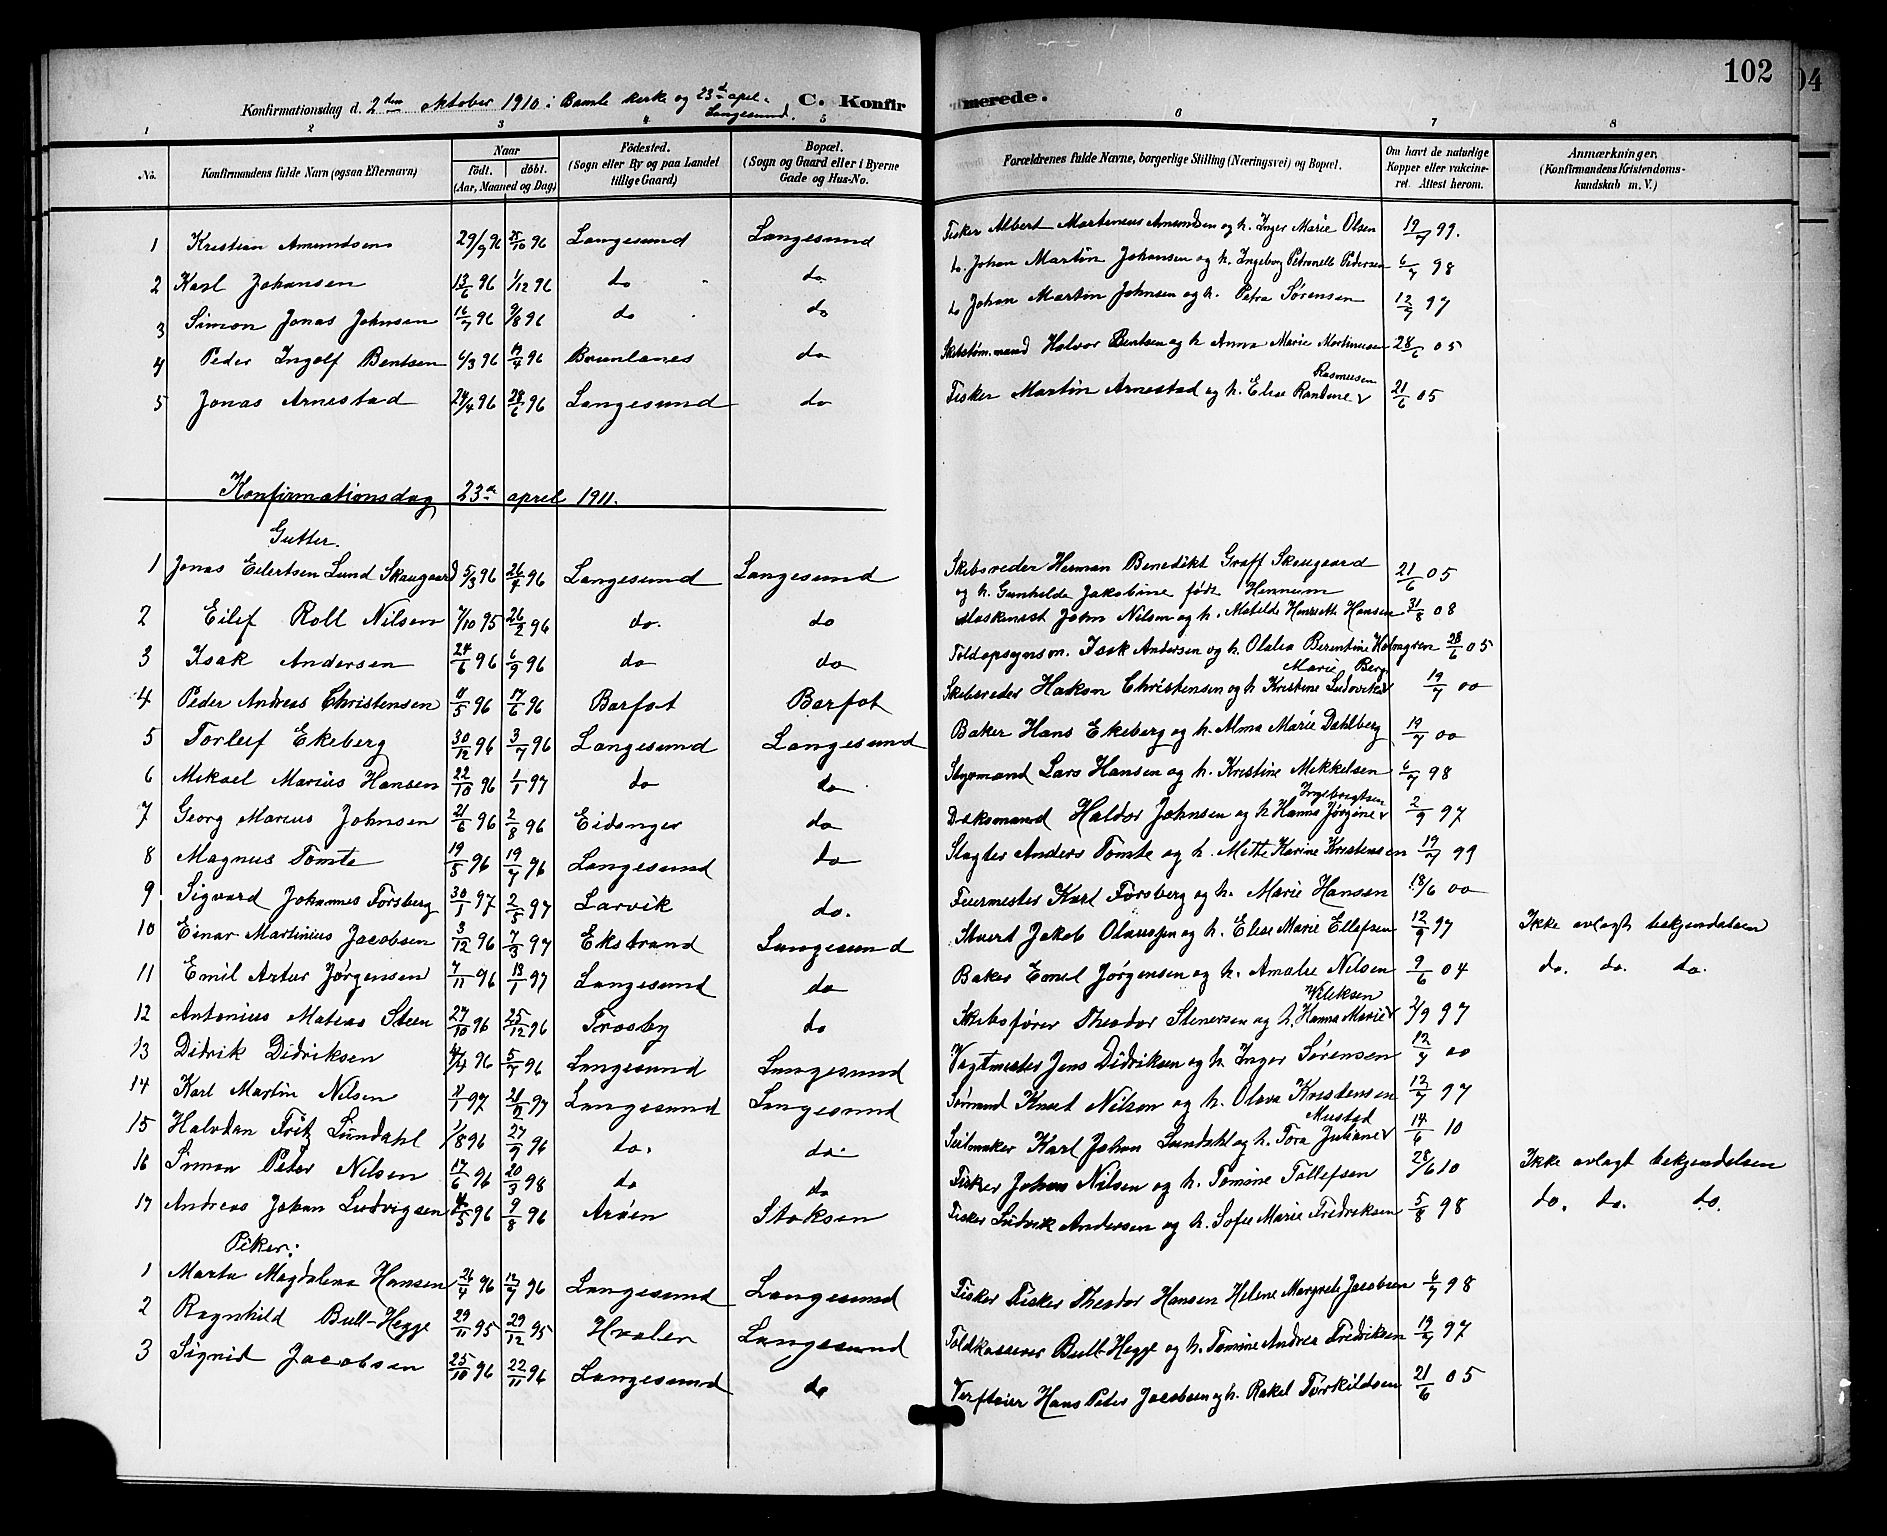 102
Konfirmationsdag d. 2den oktober 1910 i Bamle kirke og 23de apr. i Langesund. C. Konfirmerede.
1 2 3 4 5 6 7 8
No. Konfirmandens fulde Navn (ogsaa Efternavn) Naar født. døbt. (Aar, Maaned og Dag) Födested. (Sogn eller By og paa Landet tillige Gaard) Bopæl. (Sogn og Gaard eller i Byerne Gade og Hus-No. Forældrenes fulde Navne, borgerlige Stilling (Næringsvei) og Bopæl. Om havt de naturlige Kopper eller vakcineret. Attest herom. Anmærkninger. (Konfirmandens Kristendomskundskab m. V.)
1 Kristian Amundsen 29/9 96 25/10 96 Langesund Langesund Fisker Albert Martinius Amundsen og h. Inger Marie Olsen 19/7 99.
2 Karl Johansen 13/6 96 1/12 96 do do Johan Martin Johansen og h. Ingeborg Petronelle Pedersen 6/7 98
3 Simon Jonas Johnsen 16/7 96 9/8 96 do do Johan Martin Johnsen og h. Petra Sørensen 12/7 97
4 Peder Ingolf Bentsen 6/3 96 19/4 96 Brunlanes do Skibstøm.mand Halvor Bentsen og h Anna Marie Martinusen 28/6 05
5 Jonas Arnestad 24/4 96 28/6 96 Langesund do Fisker Martin Arnestad og h. Elise Randine Rasmussen 21/6 05
Konfirmationsdag 23de april 1911.
Gutter.
1 Jonas Eilertsen Lund Skaugaard 5/3 96 26/4 96 Langesund Langesund Skibsreder Herman Benedikt Graff Skaugaard og h. Gunhilde Jakobine født Hennum 21/6 05
2 Eilif Roll Nilsen 7/10 95 26/2 96 do. do Maskinest John Nilsen og h. Matilde Henriette Hansen 31/8 08
3 Isak Andersen 24/6 96 6/9 96 do do Toldopsynsm. Isak Andersen og h. Olalia Berentine Holmgren 28/6 05
4 Peder Andreas Christensen 11/5 96 17/6 96 Barfot Barfot Skibsreder Hakon Christensen og h Kristine Ludovika Marie Berg 19/7 00
5 Torleif Ekeberg 30/12 96 3/7 96 Langesund Langesund Baker Hans Ekeberg og h. Alma Marie Dahlberg 19/7 00
6 Mikael Marius Hansen 22/10 96 1/1 97 do do Styrmand Lars Hansen og h. Kristine Mikkelsen 6/7 98
7 Georg Marius Johnsen 21/6 96 2/8 96 Eidanger do Daksmand Haldor Johnsen og h Hanna Jørgine Ingebrigtsen 2/9 97
8 Magnus Tomte 19/5 96 19/7 96 Langesund do Slagter Anders Tomte og h. Mette Karine Kristensen 19/7 99
9 Sigvard Johannes Forsberg 30/1 97 2/5 97 Larvik do. Feiermester Karl Forsberg og h. Marie Hansen 18/6 00
10 Einar Martinius Jacobsen 3/12 96 7/3 97 Ekstrand Langesund Stuert Jakob Olaussen og h. Elise Marie Ellefsen 12/9 97 Ikke avlagt bekjendelsen
11 Emil Artur Jørgensen 7/11 96 13/1 97 Langesund do Baker Emil Jørgensen og h. Amalie Nilsen 9/6 04 do. do. do.
12 Antonius Matias Steen 27/10 96 25/12 96 Trosby do Skibsfører Theodor Stenersen og h. Hanna Marie Wileksen 2/9 97
13 Didrik Didriksen 4/4 96 5/7 96 Langesund Langesund Vagtmester Jens Didriksen og h Inger Sørensen 12/7 00
14 Karl Martin Nilsen 2/1 97 21/9 97 Langesund Langesund Sømand Knut Nilsen og h. Olava Kristensen 12/7 97
15 Halvdan Fritz Lundahl 1/8 96 27/9 96 do. do. Seilmaker Karl Johan Lundahl og h. Tora Juliane Mustad 14/6 10
16 Simon Peter Nilsen 17/6 96 20/3 98 do do Fisker Johan Nilsen og h. Tomine Tollefsen 28/6 10 Ikke avlagt bekjendelsen
17 Andreas Johan Ludvigsen 4/5 96 9/8 96 Arøen Stoksen Fisker Ludvik Andersen og h. Sofie Marie Fredriksen 5/8 98 do. do. do.
Piker:
1 Marta Magdalena Hansen 26/4 96 12/7 96 Langesund Langesund Fisker Fisker Theodor Hansen Helene Margrete Jacobsen 6/7 98
2 Ragnhild Bull-Hegge 29/11 95 29/12 95 Hvaler Langesund Toldkasserer Bull-Hegge og h. Tomine Andrea Fredriksen 19/7 97
3 Signid Jacobsen 25/10 96 22/11 96 Langesund do Verftseier Hans Peter Jacobsen og h. Rakel Torkildsen 21/6 05